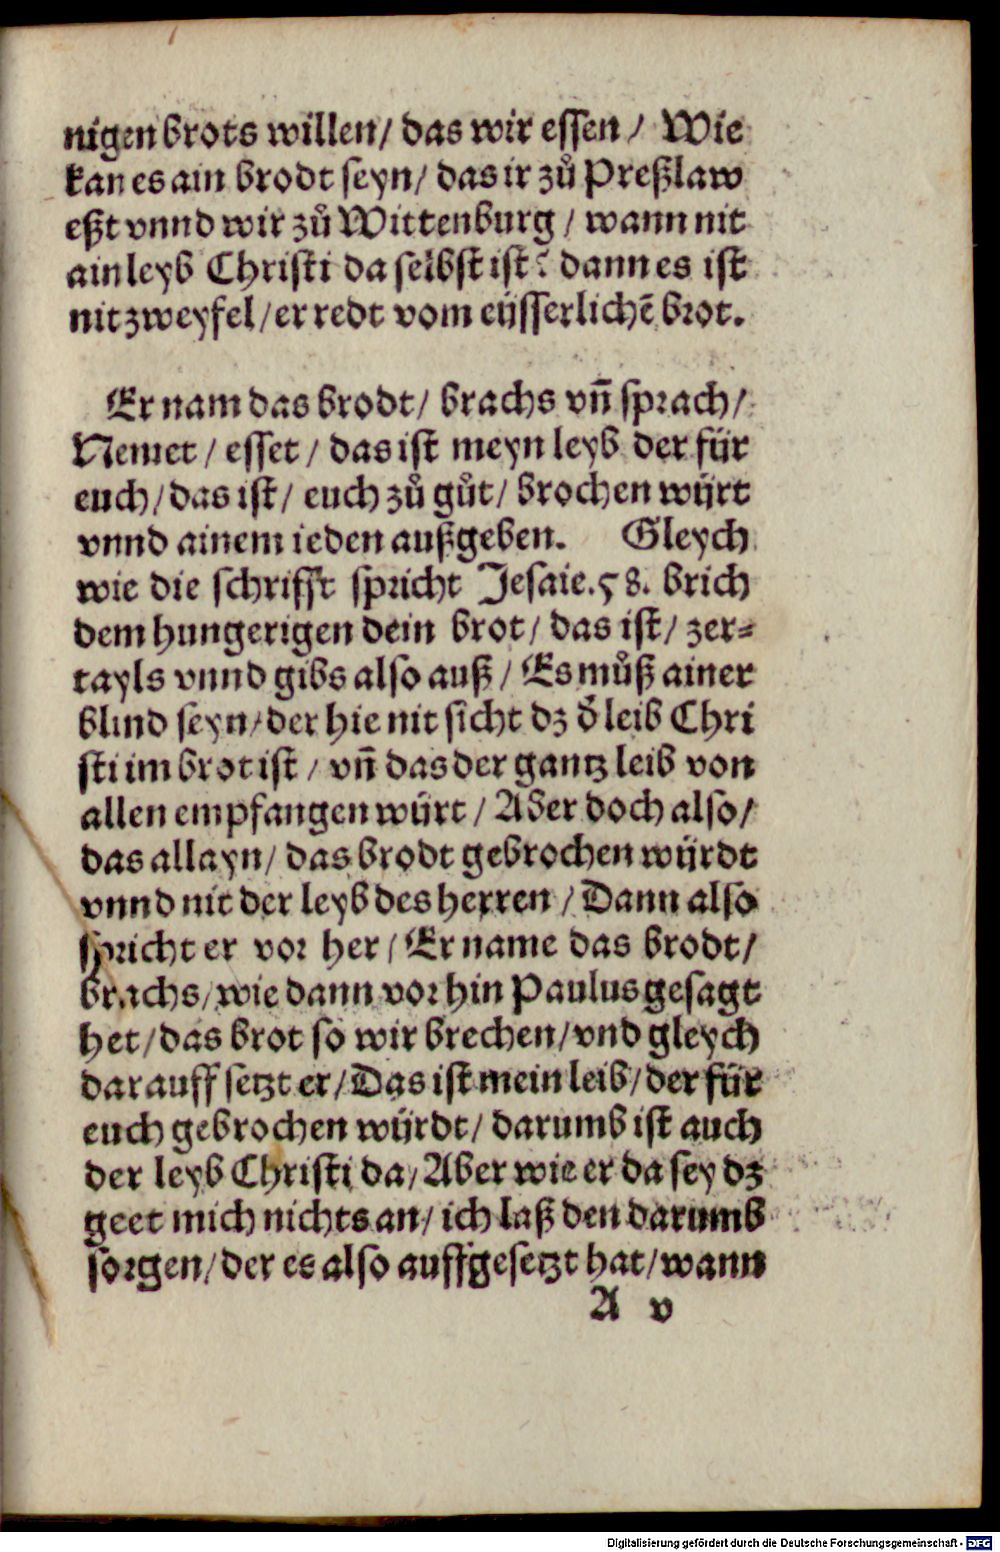 nigen brots willen/ das wir essen/ Wie
kan es ain brodt seyn/ das ir zů Preßlaw
eßt vnnd wir zů Wittenburg/ wann nit
ain leyb Christi da selbst ist? dann es ist
nit zweyfel/ er redt vom eüsserlichē brot.
Er nam das brodt/ brachs vñ sprach/
Nemet/ esset/ das ist meyn leyb der für
euch/ das ist/ euch zů gůt/ brochen würt
vnnd ainem ieden außgeben. Gleych
wie die schrifft spricht Jesaie.58. brich
dem hungerigen dein brot/ das ist/ zer⸗
tayls vnnd gibs also auß/ Es můß ainer
blind seyn/ der hie nit sicht dz d̕ leib Chri
sti im brot ist/ vñ das der gantz leib von
allen empfangen würt/ Aber doch also/
das allayn/ das brodt gebrochen würdt
vnnd nit der leyb des herren/ Dann also
spricht er vor her/ Er name das brodt/
brachs/ wie dann vorhin Paulus gesagt
het/ das brot so wir brechen/ vnd gleych
darauff setzt er/ Das ist mein leib/ der für
euch gebrochen würdt/ darumb ist auch
der leyb Christi da/ Aber wie er da sey dz
geet mich nichts an/ ich laß den darumb
sorgen/ der es also auffgesetzt hat/ wann
A v
Digitalisierung gefördert durch die Deutsche Forschungsgemeinschaft - DFG